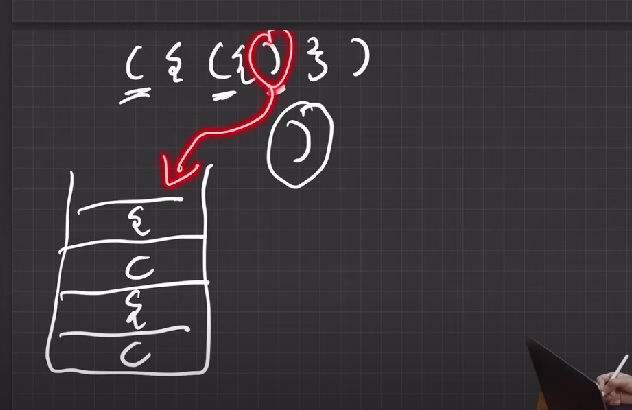 ( { ( { ) } )
)
{
(
{
(